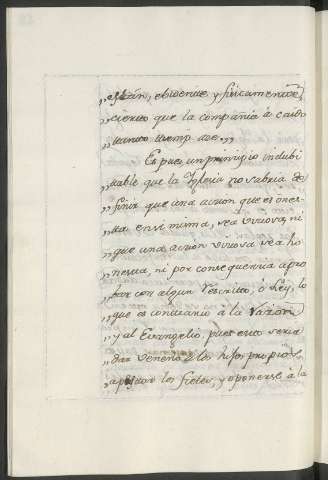 „están, evidente y fisicamente
„cierto que la compañia à caido
„tanto tiempo ave.„
Es pues un principio indubi
table que la Iglesia no sabria de
finir que una accion que es ones-
ta en si misma, sea viciosa, ni
que una accion viciosa sea ho
nesta, ni por consequencia apro
bar con algun rescritto, ò Ley, lo
que es contrario à la razon
y al Evangelio, pues esto seria
dar veneno à los hijos propios,
apestar los fieles, y oponerse à la